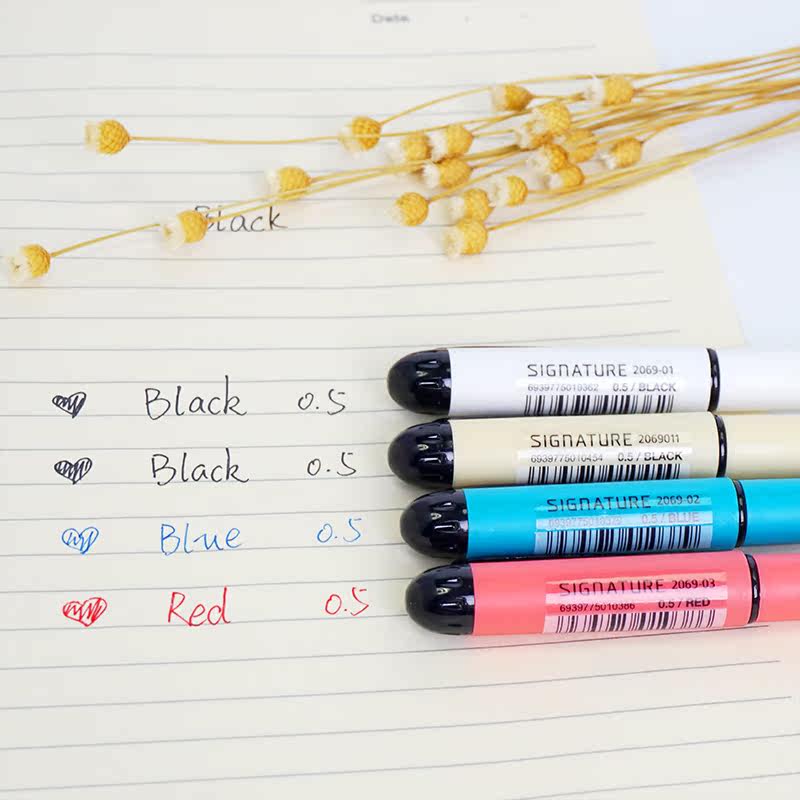 Date
Black
Black 0.5
SIGNATURE 2069-01
6939775010362 0.5 / BLACK
Black 0.5
SIGNATURE 2069011
6939775010454 0.5 / BLACK
Blue 0.5
SIGNATURE 2069-02
0.5 / BLUE
Red 0.5
SIGNATURE 2069-03
6939775010386 0.5 / RED